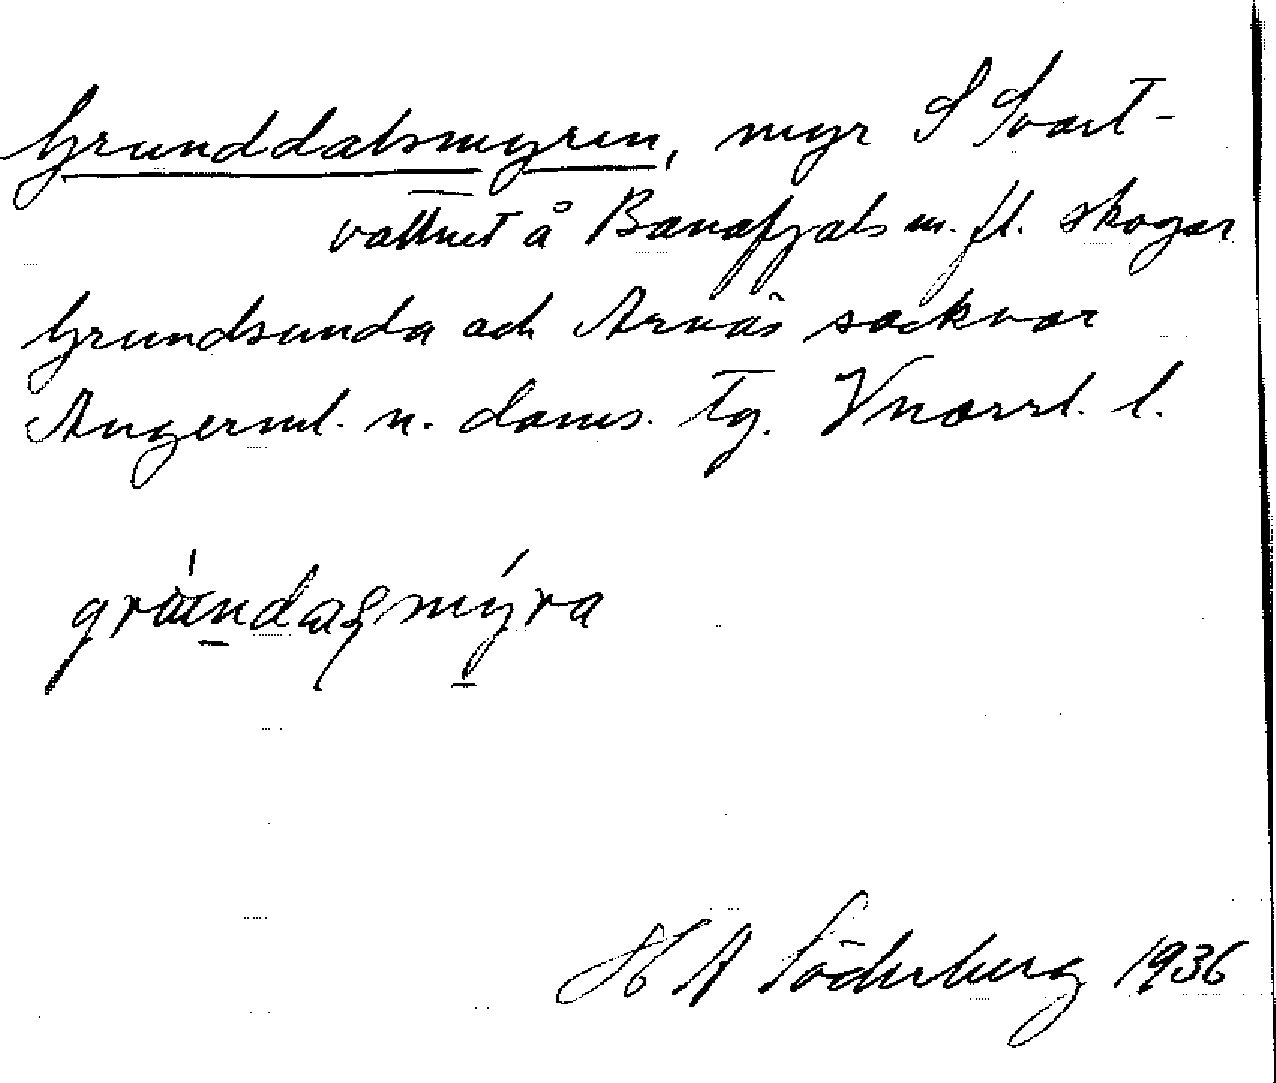 Grunddalsmyren, myr S Svart-
vattnet å Banafjäls m. fl. skogar
Grundsunda och Arnäs socknar
Ångerml. n. doms. Tg. Vnorrl. l.
H A Söderberg 1936